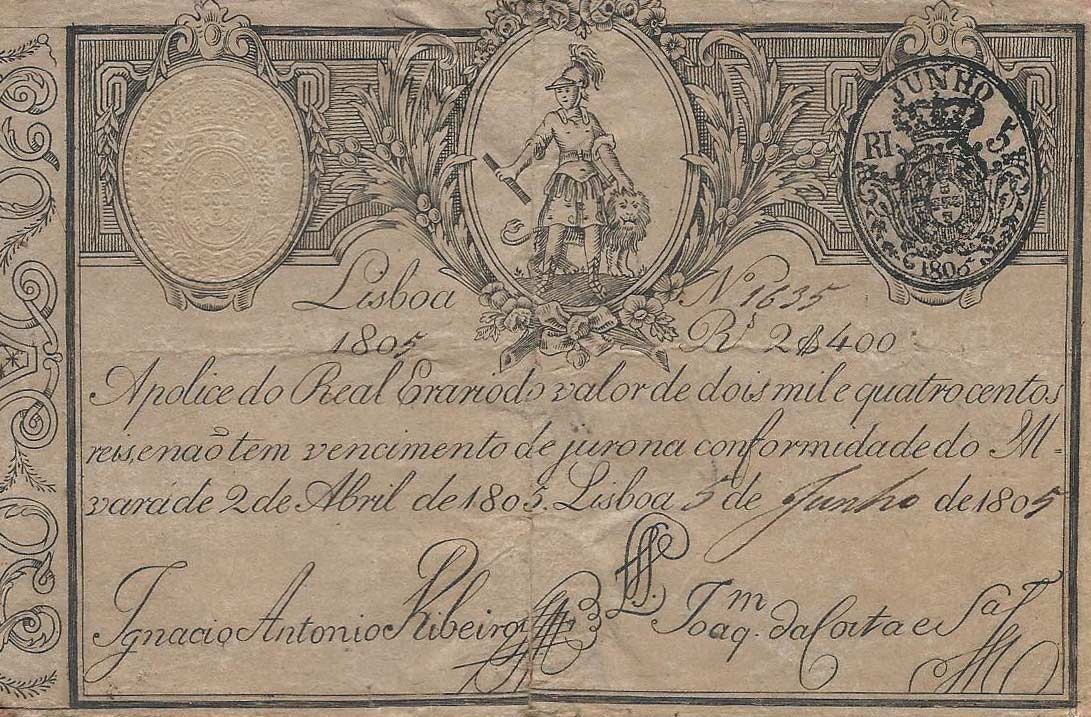 JUNHO
RI. 5
1805
Lisboa
1805
Nº 1635
Rˢ 2$400
Apolice do Real Erario do valor de dois mil e quatro centos
reis, e não tem vencimento de juro na conformidade do Al-
vará de 2 de Abril de 1805. Lisboa 5 de Junho de 1805
Ignacio Antonio Ribeiro
Joaq.ᵐ da Costa e Sᵃ